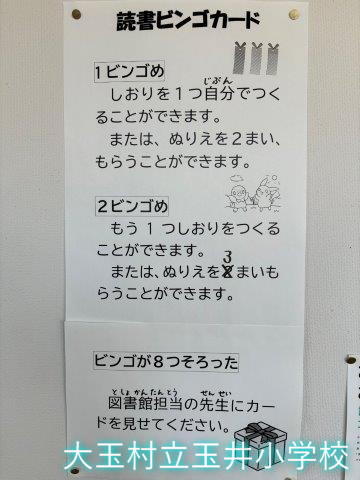 読書ビンゴカード
1ビンゴめ
しおりを1つ自分でつく
ることができます。
または、ぬりえを2まい、
もらうことができます。
2ビンゴめ
もう1つしおりをつくる
ことができます。
または、ぬりえを3まいも
らうことができます。
ビンゴが8つそろった
図書館担当の先生にカー
ドを見せてください。
大玉村立玉井小学校